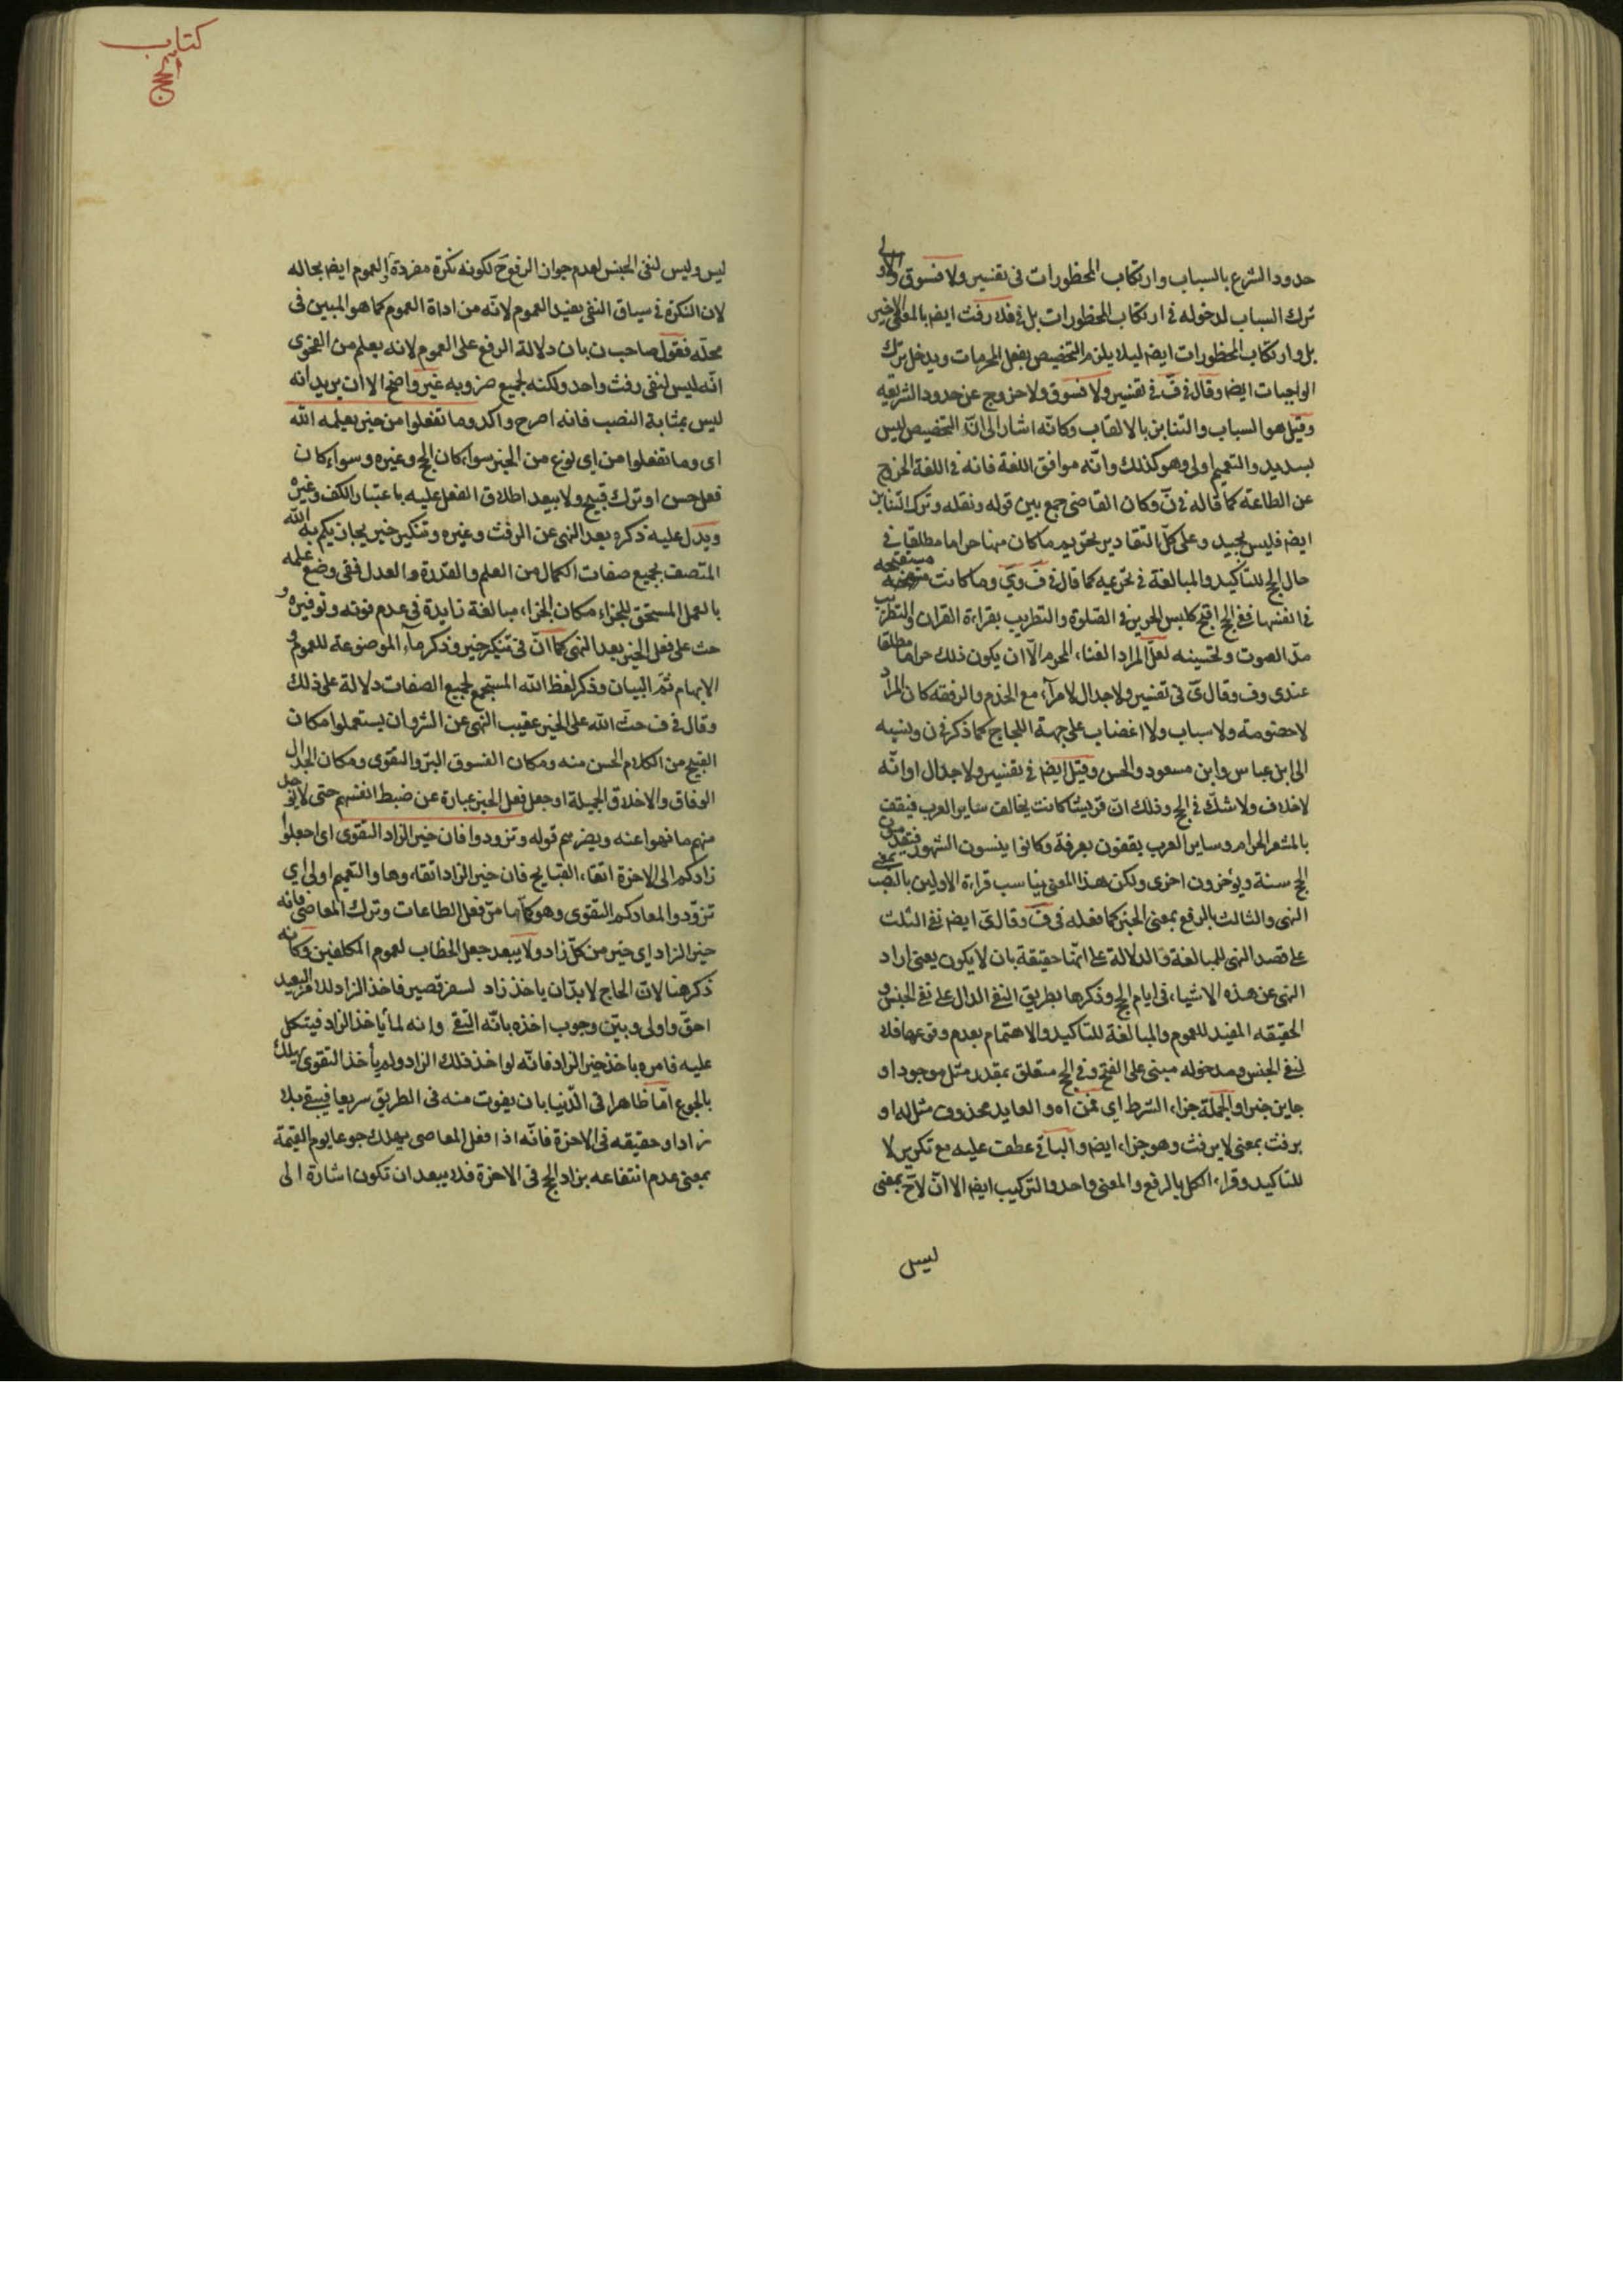 حدود الشرع بالسباب وارتكاب المحظورات فى تفسير ولا فسوق والاولى
ترك السباب لدخوله فى ارتكاب المحظورات بل فى فلا رفث ايضا بالمعنى الاخير
بل وارتكاب المحظورات ايضا ليلا يلزم التخصيص بفعل المحرمات ويدخل ترك
الواجبات ايضا وقال فى ف فى تفسير ولا فسوق ولا خروج عن حدود الشريعه
وقيل هو السباب والتنابز بالالقاب وكانّه اشار الى انّ التخصيص ليس
بسديد والتعميم اولى وهو كذلك وانّه موافق اللغة فانه فى اللغة الخروج
عن الطاعة كما قاله فى ن وكان القاضى جمع بين قوله ونقله وترك التنابز
ايضا فليس بجيد وعلى كلّ التقادير تحريم ما كان منها حراما مطلقا فى
حال الحج للتأكيد والمبالغة فى تحريمه كما قال فى ف وى وما كانت مستقبحه
فى انفسها ففى الحج اقبح كلبس الحرير فى الصلوة والتطريب بقراءة القران والتطريب
مدّ الصوت وتحسينه لعلّ المراد الغناء المحرم الّا ان يكون ذلك حراما مطلقا
عندى وف وقال ى فى تفسير ولا جدال لا مرآء مع الخدم والرفقه كان المراد
لا خصومة ولا سباب ولا اغضاب على جهة اللجاج كما ذكر فى ن ونسبه
الى ابن عباس وابن مسعود والحسن وقيل ايضا فى تفسير ولا جدال او انّه
لا خلاف ولا شكّ فى الحج وذلك انّ قريشا كانت يخالف ساير العرب فيقف
بالمشعر الحرام وساير العرب يقفون بعرفة وكانوا ينسون الشهور فيقدمون
الحج سنة ويؤخرون اخرى ولكن هذا المعنى يناسب قراءة الاولين بالنصب بمعنى
النهى والثالث بالرفع بمعنى الخبر كما فعله فى ف وقال ى ايضا نفى الثلث
على قصد النهى للمبالغة والدلالة على انّها حقيقة بان لا يكون يعنى اراد
النهى عن هذه الاشياء فى ايام الحج وذكرها بطريق النفى الدال على نفى الجنس و
الحقيقه المفيد للعموم والمبالغة للتاكيد والاهتمام بعدم وقوعها فلا
لنفى الجنس ومدخوله مبنى على الفتح وفى الحج متعلق بمقدر مثل موجود او
جايز خبر او الجملة جزاء الشرط اى فمن اه والعايد محذوف مثل له او
يرفث بمعنى لا يرفث وهو جزاء ايضا والباقى عطف عليه مع تكرير لا
للتاكيد وقراء الكل بالرفع والمعنى واحد والتركيب ايضا الا انّ لا ح بمعنى
ليس
كتاب
الحج
ليس وليس لنفى الجنس لعدم جواز الرفع ح لكونه نكرة مفردة والعموم ايضا بحاله
لان النكرة فى سياق النفى يفيد العموم لانّه من اداة العموم كما هو المبين فى
محلّه فقول صاحب ن بان دلالة الرفع على العموم لانه يعلم من الفحوى
انّه ليس لنفى رفث واحد ولكنه لجميع ضروبه غير واضح الا ان يريد انه
ليس بمثابة النصب فانه اصرح واكد وما تفعلوا من خير يعلمه الله
اى وما تفعلوا من اى نوع من الخير سواء كان الحج وغيره وسواء كان
فعل حسن او ترك قبيح ولا يبعد اطلاق الفعل عليه باعتبار الكف وغيره
ويدل عليه ذكره بعد النهى عن الرفث وغيره وتنكير خير الله
المتصف بجميع صفات الكمال من العلم والقدرة والعدل ففى وضع علمه
بالعمل المستحق للجزاء مكان الجزاء مبالغة زايدة فى عدم فوته وتوفيره و
حث على فعل الخير بعد النهى كما انّ فى تنكير خير وذكر ما الموضوعة للعموم و
الابهام ثمّ البيان وذكر لفظ الله المستجمع لجميع الصفات دلالة على ذلك
وقال فى ف حثّ الله على الخير عقيب النهى عن الشر وان يستعملوا مكان
القبيح من الكلام الحسن منه ومكان الفسوق البرّ والتقوى ومكان الجدال
الوفاق والاخلاق الجميلة او جعل فعل الخير عبارة عن ضبط انفسهم حتى لا يوجد
منهم ما نهوا عنه وينصرهم قوله وتزودوا فان خير الزاد التقوى اى اجعلوا
زادكم الى الاخرة اتقاء القبايح فان خير الزاد اتقاءوها والتعميم اولى اى
تزوّدوا لمعادكم التقوى وهو كما مرّ فعل الطاعات وترك المعاصى فانه
خير الزاد اى خير من كلّ زاد ولا يبعد جعل الخطاب لعموم المكلفين وكانه
ذكر هنا لانّ الحاج لا بدّ ان ياخذ زاد لسفر قصير فاخذ الزاد للسفر البعيد
احقّ واولى وبيّن وجوب اخذه بانّه التقى وانه لما ياخذ الزاد فيتكل
عليه فامره باخذ خير الزاد فانّه لو اخذ ذلك الزاد ولم يأخذ التقوى يهلك
بالجوع امّا ظاهرا فى الدّنيا بان يفوت منه فى الطريق سريعا فيبقى بلا
زاد او حقيقه فى الاخرة فانّه اذا فعل المعاصى يهلك جوعا يوم القيمة
بمعنى عدم انتفاعه بزاد الحج فى الاخرة فلا يبعد ان تكون اشارة الى